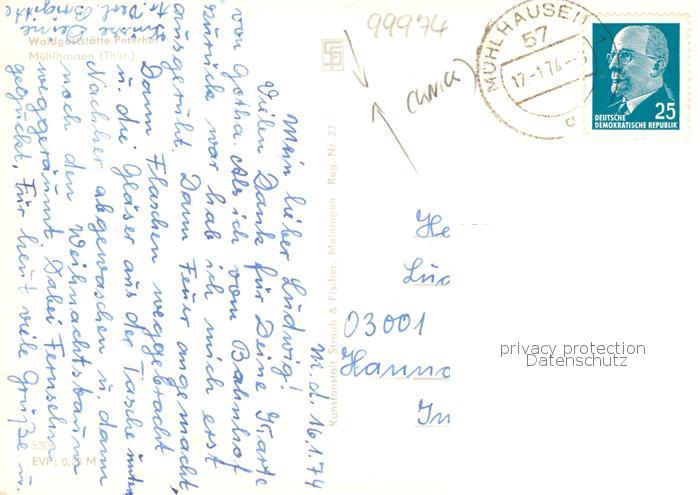 99974
(knick)
MÜHLHAUSEN
57
17-1.74
c
25
DEUTSCHE
DEMOKRATISCHE REPUBLIK
Waldgaststätte Peterhof
Mühlhausen (Thür.)
M. d. 16.1.74
Mein lieber Ludwig!
Vielen Dank für Deine Karte
von Gotha. Als ich vom Bahnhof
zurück war hab ich mich erst
ausgeruht. Dann Feuer angemacht,
Dann Flaschen weggebracht
u. die Gläser aus der Tasche unten
Nachher abgewaschen u. dann
noch den Weihnachtsbaum
weggeräumt. Dabei Fernsehn
geguckt. Für heut viele Grüße u.
Deine
Brigitte
Kunstanstalt Straub & Fischer, Meiningen Reg.-Nr. 23
He
Lud
03001
Hanno
In
privacy protection
Datenschutz
EVP: 0,25 M